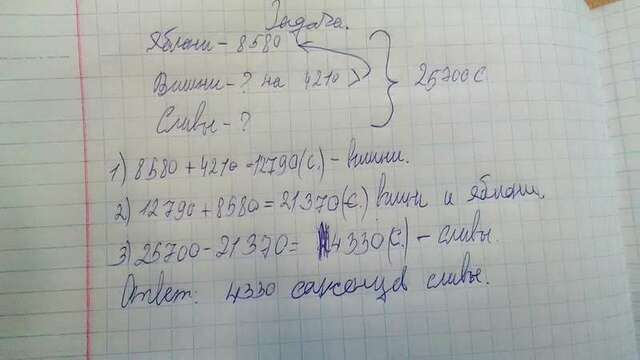 Задача.
Яблони - 8580
Вишни - ? на 4210 >
25700 с.
Сливы - ?
1) 8580 + 4210 = 12790 (с.) - вишни.
2) 12790 + 8580 = 21370 (с.) вишни и яблони
3) 25700 - 21370 = 4330 (с.) - сливы.
Ответ: 4330 саженцев сливы.